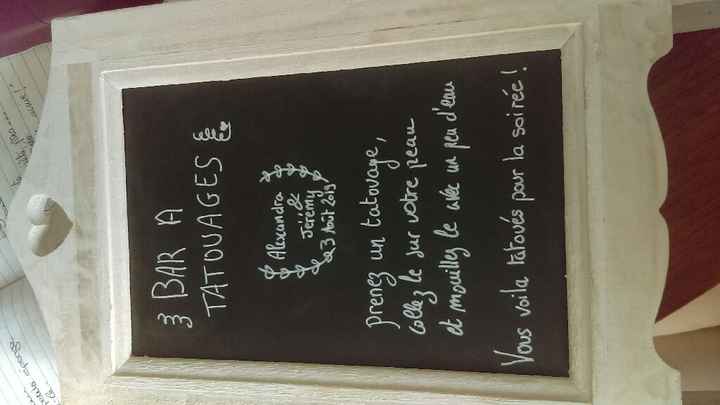 BAR A
TATOUAGES
Alexandra
&
Jérémy
3 Août 2019
prenez un tatouage,
collez le sur votre peau
et mouillez le avec un peu d'eau
Vous voila tatoués pour la soirée !